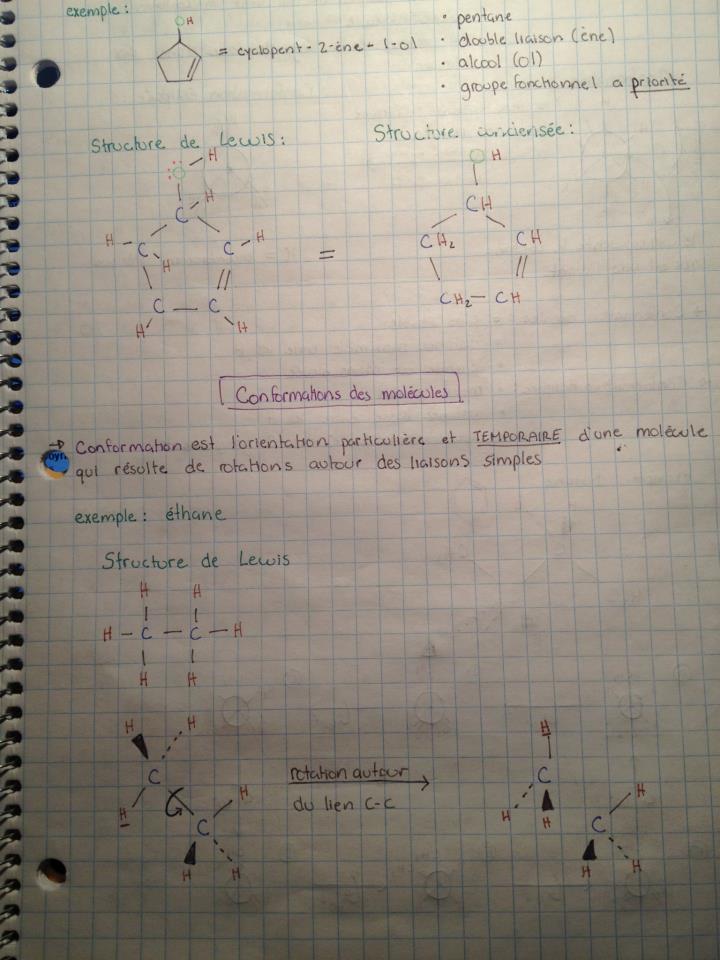 exemple:
OH
= cyclopent-2-ène-1-ol
• pentane
• double liaison (ène)
• alcool (ol)
• groupe fonctionnel a priorité
Structure de Lewis:
Structure
:O - H
C - H
H - C - H
C - H
C - C
H
H
=
O H
CH
CH2 CH
CH2 - CH
Conformations des molécules
→ Conformation est l'orientation particulière et TEMPORAIRE d'une molécule
qui résolte de rotations autour des liaisons simples
exemple: éthane
Structure de Lewis
H H
H - C - C - H
H H
H H
C
H
C H
H H
rotation autour
du lien C-C
H
C
H H
C H
H H